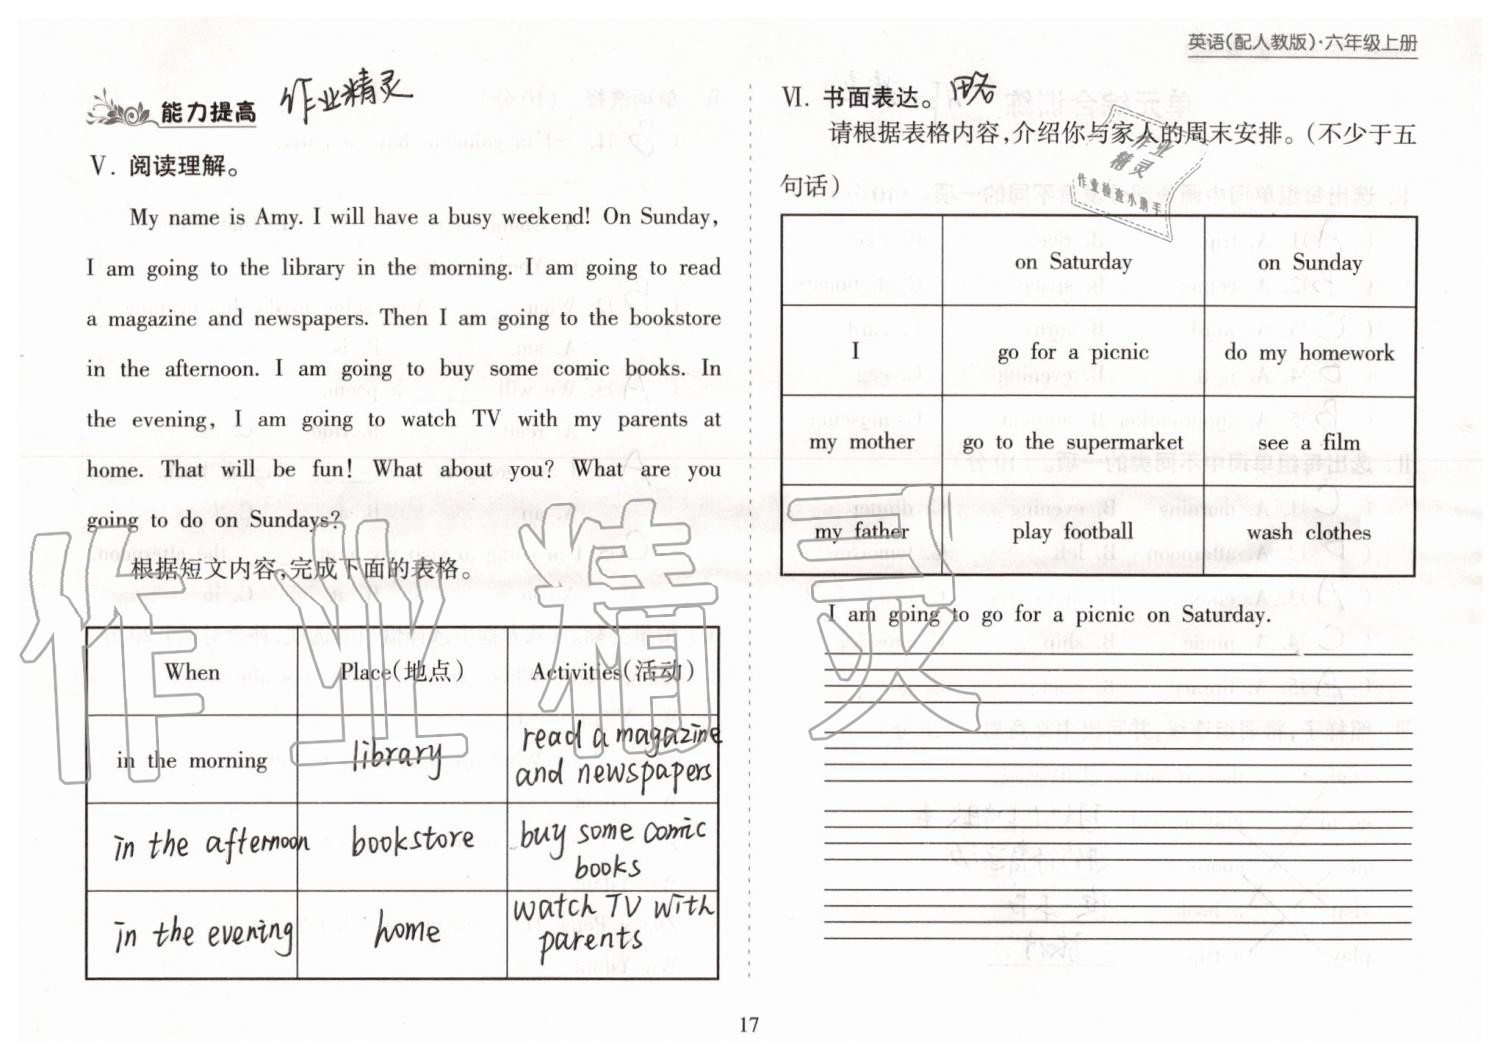 英语(配人教版)·六年级上册
能力提高 作业精灵
Ⅴ. 阅读理解。
My name is Amy. I will have a busy weekend! On Sunday,
I am going to the library in the morning. I am going to read
a magazine and newspapers. Then I am going to the bookstore
in the afternoon. I am going to buy some comic books. In
the evening, I am going to watch TV with my parents at
home. That will be fun! What about you? What are you
going to do on Sundays?
根据短文内容,完成下面的表格。
When Place(地点) Activities(活动)
in the morning library read a magazine
and newspapers
in the afternoon bookstore buy some comic
books
in the evening home watch TV with
parents
Ⅵ. 书面表达。略
请根据表格内容,介绍你与家人的周末安排。(不少于五
句话)
作业
精灵
作业检查小助手
on Saturday on Sunday
I go for a picnic do my homework
my mother go to the supermarket see a film
my father play football wash clothes
I am going to go for a picnic on Saturday.
作业精灵
17